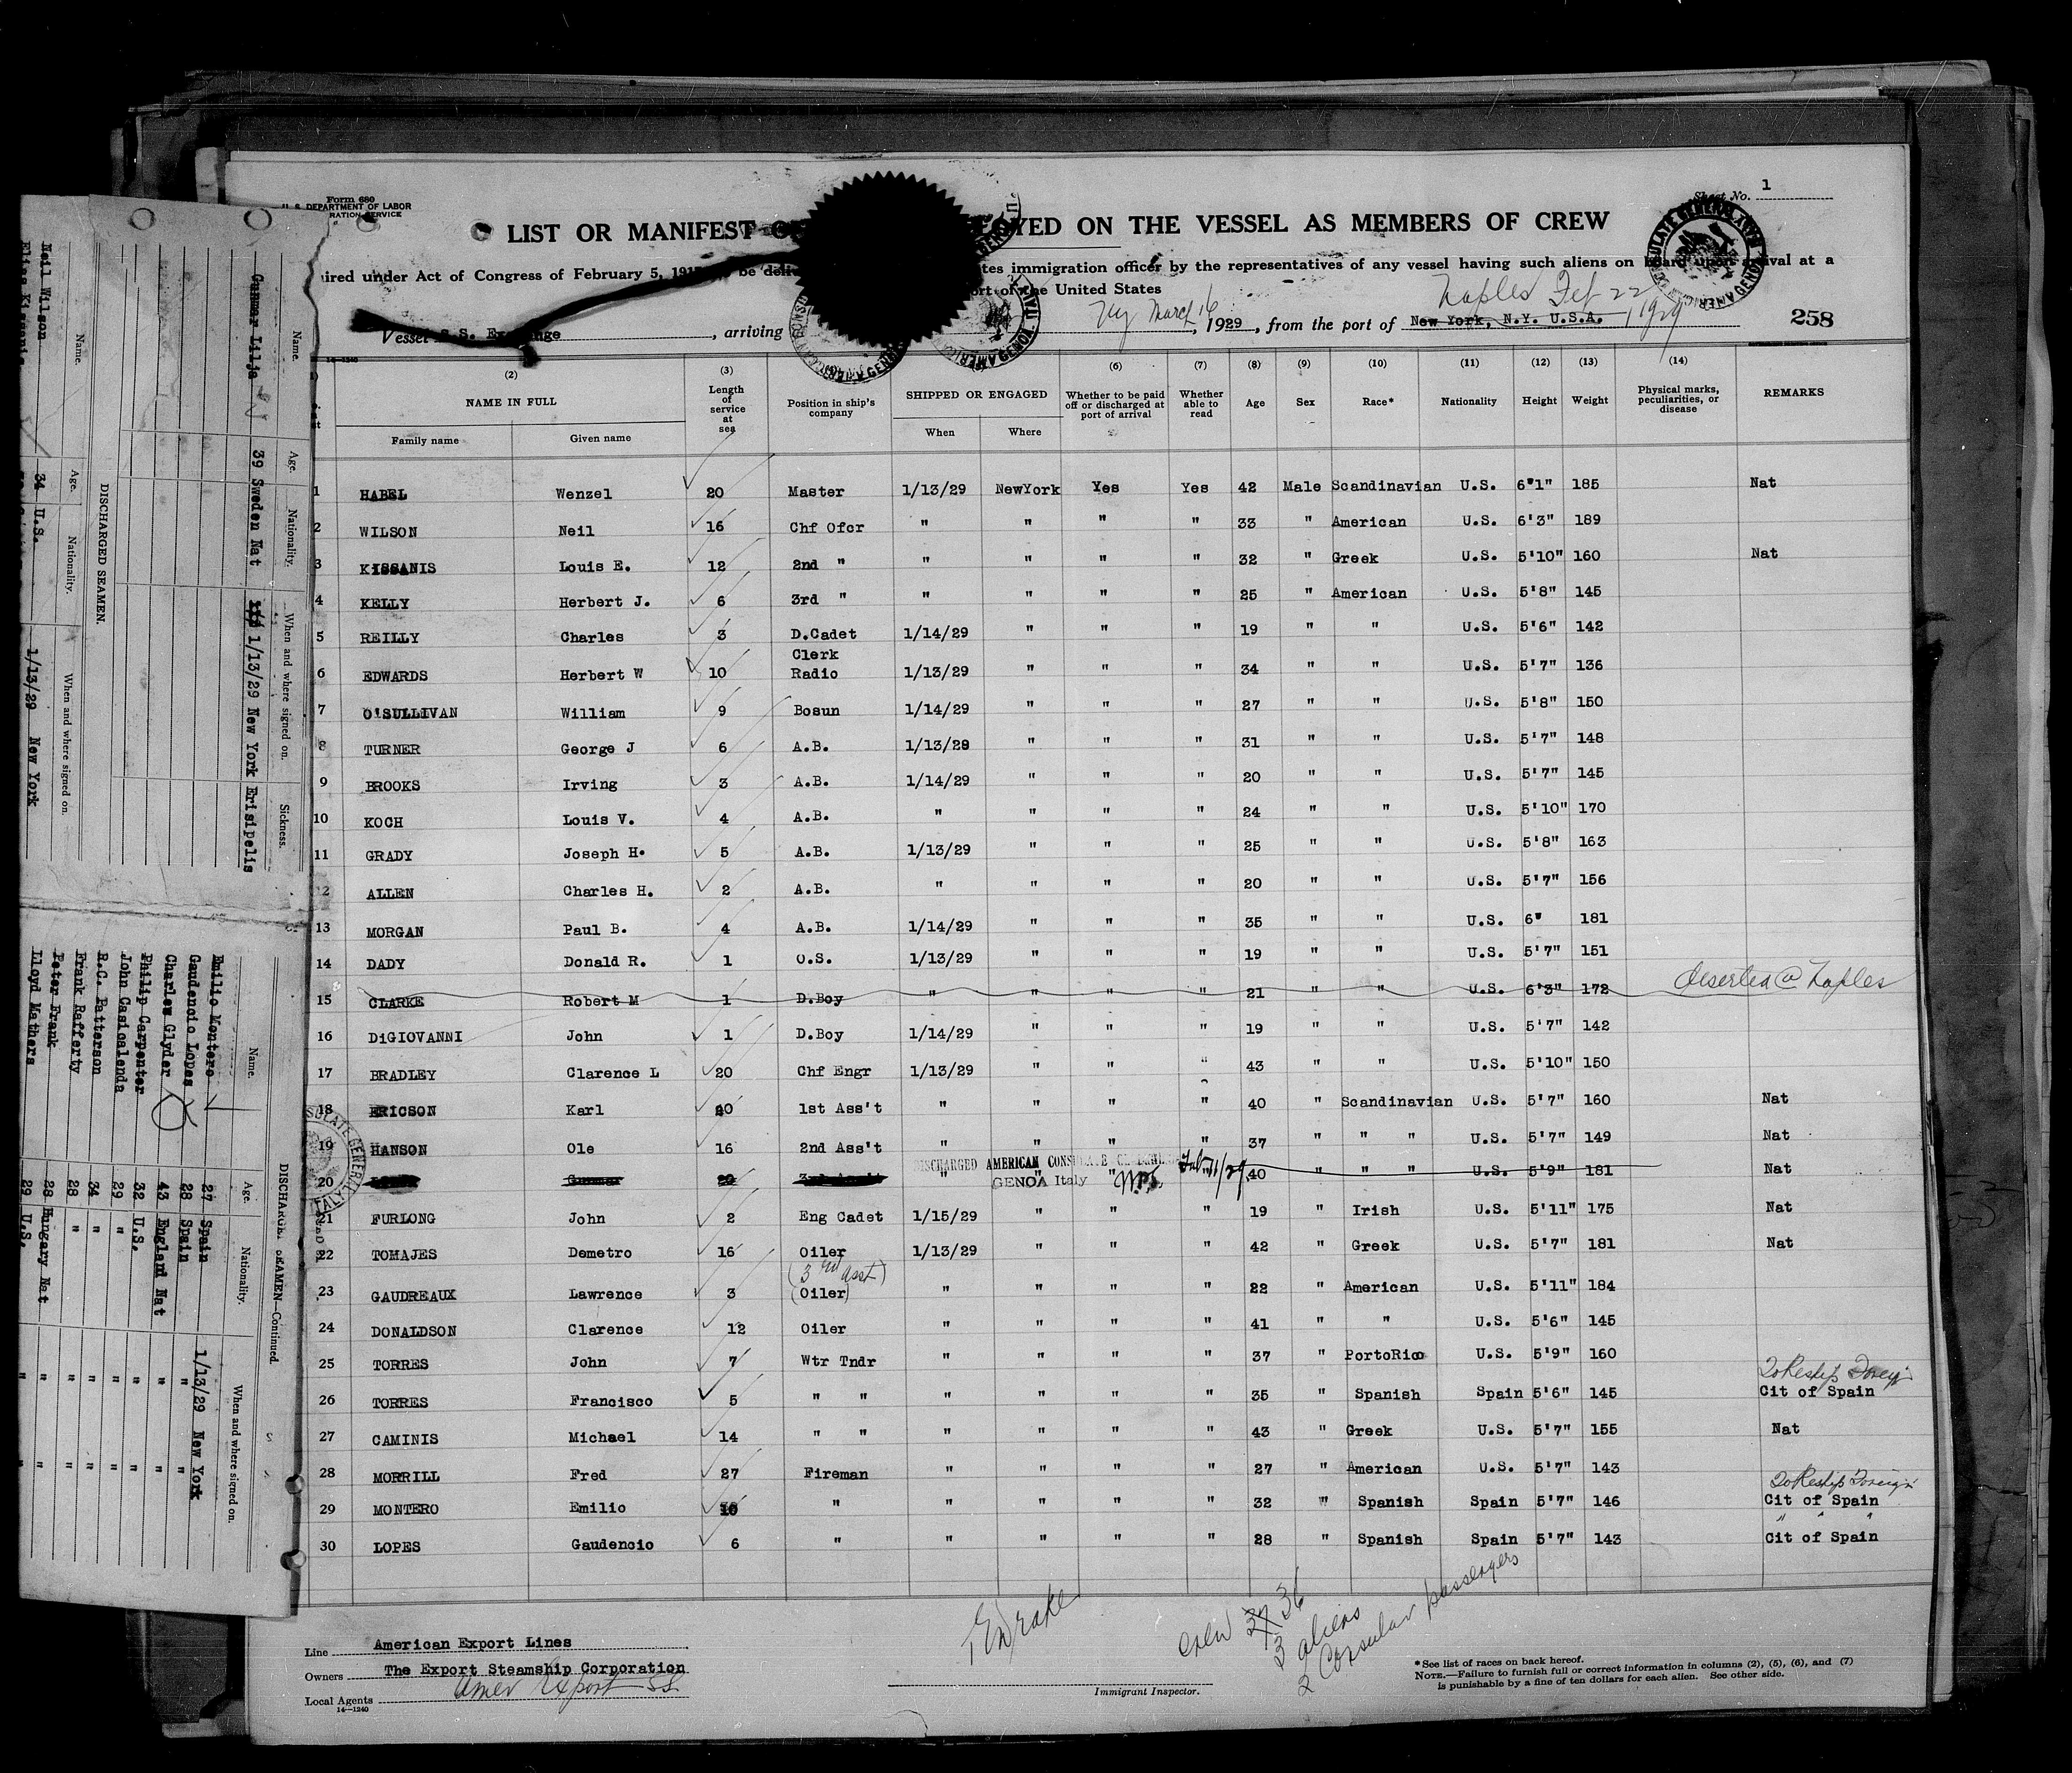 Form 680
U. S. DEPARTMENT OF LABOR
RATION SERVICE
Sheet No. 1
LIST OR MANIFEST OF YED ON THE VESSEL AS MEMBERS OF CREW
ired under Act of Congress of February 5, be deli tes immigration officer by the representatives of any vessel having such aliens on board upon arrival at a
port of the United States
Vessel S.S. Exchange, arriving Ny March 16, 1929, from the port of New York, N.Y. U.S.A. Naples Feb 22 1929
258
14-1240
(2) (3) (6) (7) (8) (9) (10) (11) (12) (13) (14)
NAME IN FULL Length of service at sea Position in ship's company SHIPPED OR ENGAGED Whether to be paid off or discharged at port of arrival Whether able to read Age Sex Race* Nationality Height Weight Physical marks, peculiarities, or disease REMARKS
Family name Given name When Where
1 HABEL Wenzel 20 Master 1/13/29 NewYork Yes Yes 42 Male Scandinavian U.S. 6'1" 185 Nat
2 WILSON Neil 16 Chf Ofcr " " " " 33 " American U.S. 6'3" 189
3 KISSANIS Louis E. 12 2nd " " " " " 32 " Greek U.S. 5'10" 160 Nat
4 KELLY Herbert J. 6 3rd " " " " " 25 " American U.S. 5'8" 145
5 REILLY Charles 3 D.Cadet 1/14/29 " " " 19 " " U.S. 5'6" 142
6 EDWARDS Herbert W 10 Clerk Radio 1/13/29 " " " 34 " " U.S. 5'7" 136
7 O'SULLIVAN William 9 Bosun 1/14/29 " " " 27 " " U.S. 5'8" 150
8 TURNER George J 6 A.B. 1/13/29 " " " 31 " " U.S. 5'7" 148
9 BROOKS Irving 3 A.B. 1/14/29 " " " 20 " " U.S. 5'7" 145
10 KOCH Louis V. 4 A.B. " " " " 24 " " U.S. 5'10" 170
11 GRADY Joseph H. 5 A.B. 1/13/29 " " " 25 " " U.S. 5'8" 163
12 ALLEN Charles H. 2 A.B. " " " " 20 " " U.S. 5'7" 156
13 MORGAN Paul B. 4 A.B. 1/14/29 " " " 35 " " U.S. 6" 181
14 DADY Donald R. 1 O.S. 1/13/29 " " " 19 " " U.S. 5'7" 151
15 CLARKE Robert M 1 D.Boy " " " " 21 " " U.S. 6'3" 172 deserted @ Naples
16 DiGIOVANNI John 1 D.Boy 1/14/29 " " " 19 " " U.S. 5'7" 142
17 BRADLEY Clarence L 20 Chf Engr 1/13/29 " " " 43 " " U.S. 5'10" 150
18 ERICSON Karl 20 1st Ass't " " " " 40 " Scandinavian U.S. 5'7" 160 Nat
19 HANSON Ole 16 2nd Ass't " " " " 37 " " " U.S. 5'7" 149 Nat
20 Gunmar 20 3rd Ass't " " " 40 " " " U.S. 5'9" 181 Nat
DISCHARGED AMERICAN CONSULATE GENERAL
GENOA Italy Feb 11/29
21 FURLONG John 2 Eng Cadet 1/15/29 " " " 19 " Irish U.S. 5'11" 175 Nat
22 TOMAJES Demetro 16 Oiler 1/13/29 " " " 42 " Greek U.S. 5'7" 181 Nat
23 GAUDREAUX Lawrence 3 (3rd asst) (Oiler) " " " " 22 " American U.S. 5'11" 184
24 DONALDSON Clarence 12 Oiler " " " " 41 " " U.S. 5'6" 145
25 TORRES John 7 Wtr Tndr " " " " 37 " PortoRico U.S. 5'9" 160
26 TORRES Francisco 5 " " " " " " 35 " Spanish Spain 5'6" 145 To Reship Foreign Cit of Spain
27 CAMINIS Michael 14 " " " " " " 43 " Greek U.S. 5'7" 155 Nat
28 MORRILL Fred 27 Fireman " " " " 27 " American U.S. 5'7" 143
29 MONTERO Emilio " " " " " 32 " Spanish Spain 5'7" 146 To Reship Foreign Cit of Spain
30 LOPES Gaudencio 6 " " " " " 28 " Spanish Spain 5'7" 143 " " " Cit of Spain
crew 37 36
3 aliens
2 Consular passengers
Line American Export Lines
Owners The Export Steamship Corporation
Local Agents Amer Export SS
14-1240
Immigrant Inspector.
*See list of races on back hereof.
NOTE.—Failure to furnish full or correct information in columns (2), (5), (6), and (7)
is punishable by a fine of ten dollars for each alien. See other side.
DISCHARGED SEAMEN.
Name. Age. Nationality. When and where signed on. Sickness.
Gunmar Lilja 39 Sweden Nat 1/13/29 New York Erisipelis
Name. Age. Nationality. When and where signed on.
Neil Wilson 34 U.S. 1/13/29 New York
DISCHARGED SEAMEN—Continued.
Name. Age. Nationality. When and where signed on.
Emilio Montero 27 Spain 1/13/29 New York
Gaudencio Lopes 28 Spain " "
Charles Glyder 43 England Nat " "
Philip Carpenter 32 U.S. " "
John Casicalenda 29 " " "
R.C. Patterson 34 " " "
Frank Rafferty 28 " " "
Peter Frank 28 Hungary Nat " "
Lloyd Mathers 29 U.S. " "